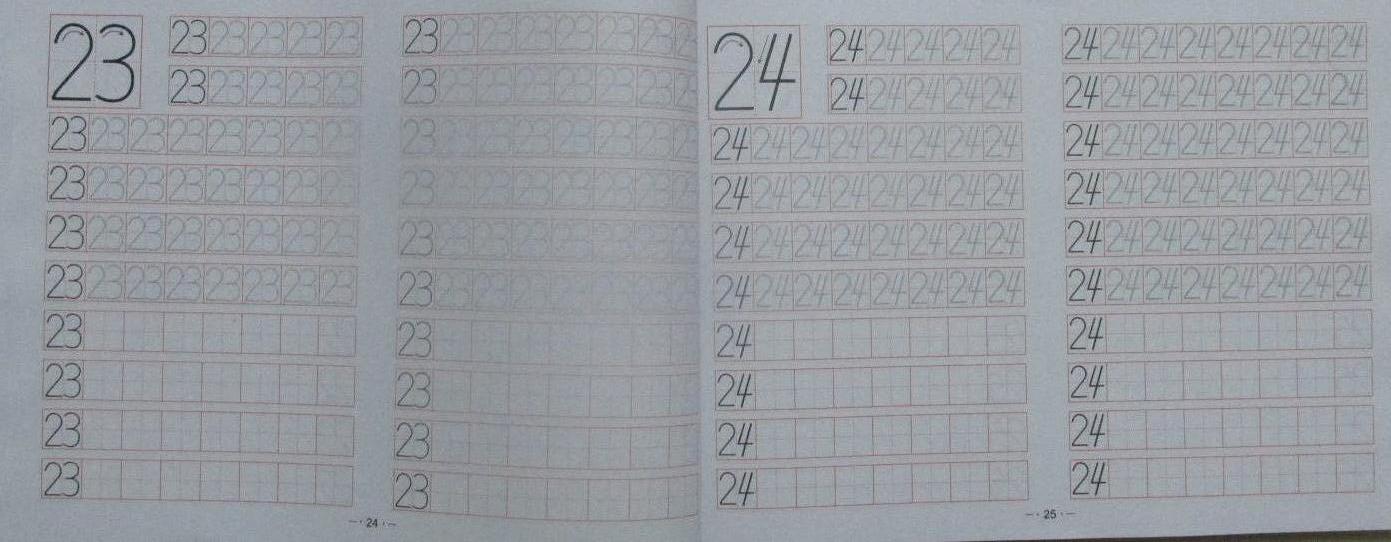 23
23 23 23 23 23
23 23 23 23 23
23 23 23 23 23 23 23 23
23 23 23 23 23 23 23 23
23 23 23 23 23 23 23 23
23 23 23 23 23 23 23 23
23
23
23
23
23 23 23 23 23 23 23 23
23 23 23 23 23 23 23 23
23 23 23 23 23 23 23 23
23 23 23 23 23 23 23 23
23 23 23 23 23 23 23 23
23 23 23 23 23 23 23 23
23
23
23
23
— · 24 · —
24
24 24 24 24 24
24 24 24 24 24
24 24 24 24 24 24 24 24
24 24 24 24 24 24 24 24
24 24 24 24 24 24 24 24
24 24 24 24 24 24 24 24
24
24
24
24
24 24 24 24 24 24 24 24
24 24 24 24 24 24 24 24
24 24 24 24 24 24 24 24
24 24 24 24 24 24 24 24
24 24 24 24 24 24 24 24
24 24 24 24 24 24 24 24
24
24
24
24
— · 25 · —